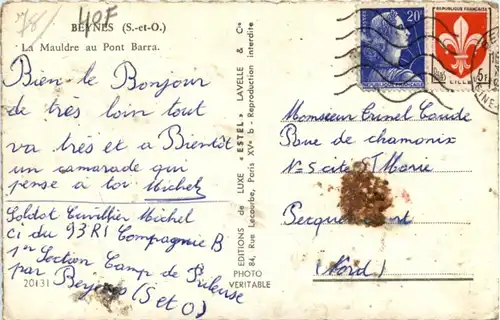 78/ 40F
BEYNES (S.-et-O.)
La Mauldre au Pont Barra.
Bien le Bonjour
de très loin tout
va très et a Bientôt
un camarade qui
pense a toi Michel
Soldat Cuvillier Michel
ci du 93 RI Compagnie B
1er Section Camp de
par Beynes (S et O)
20131
PHOTO
VERITABLE
EDITIONS de LUXE "ESTEL" LAVELLE & Cie
84, Rue Lecourbe, Paris XVe b - Reproduction interdite
20F
REPUBLIQUE FRANÇAISE
REPUBLIQUE FRANÇAISE
LILLE
5F
Monsieur Crinel Caude
Rue de chamonix
N=5 cite ST Marie
(Nord)